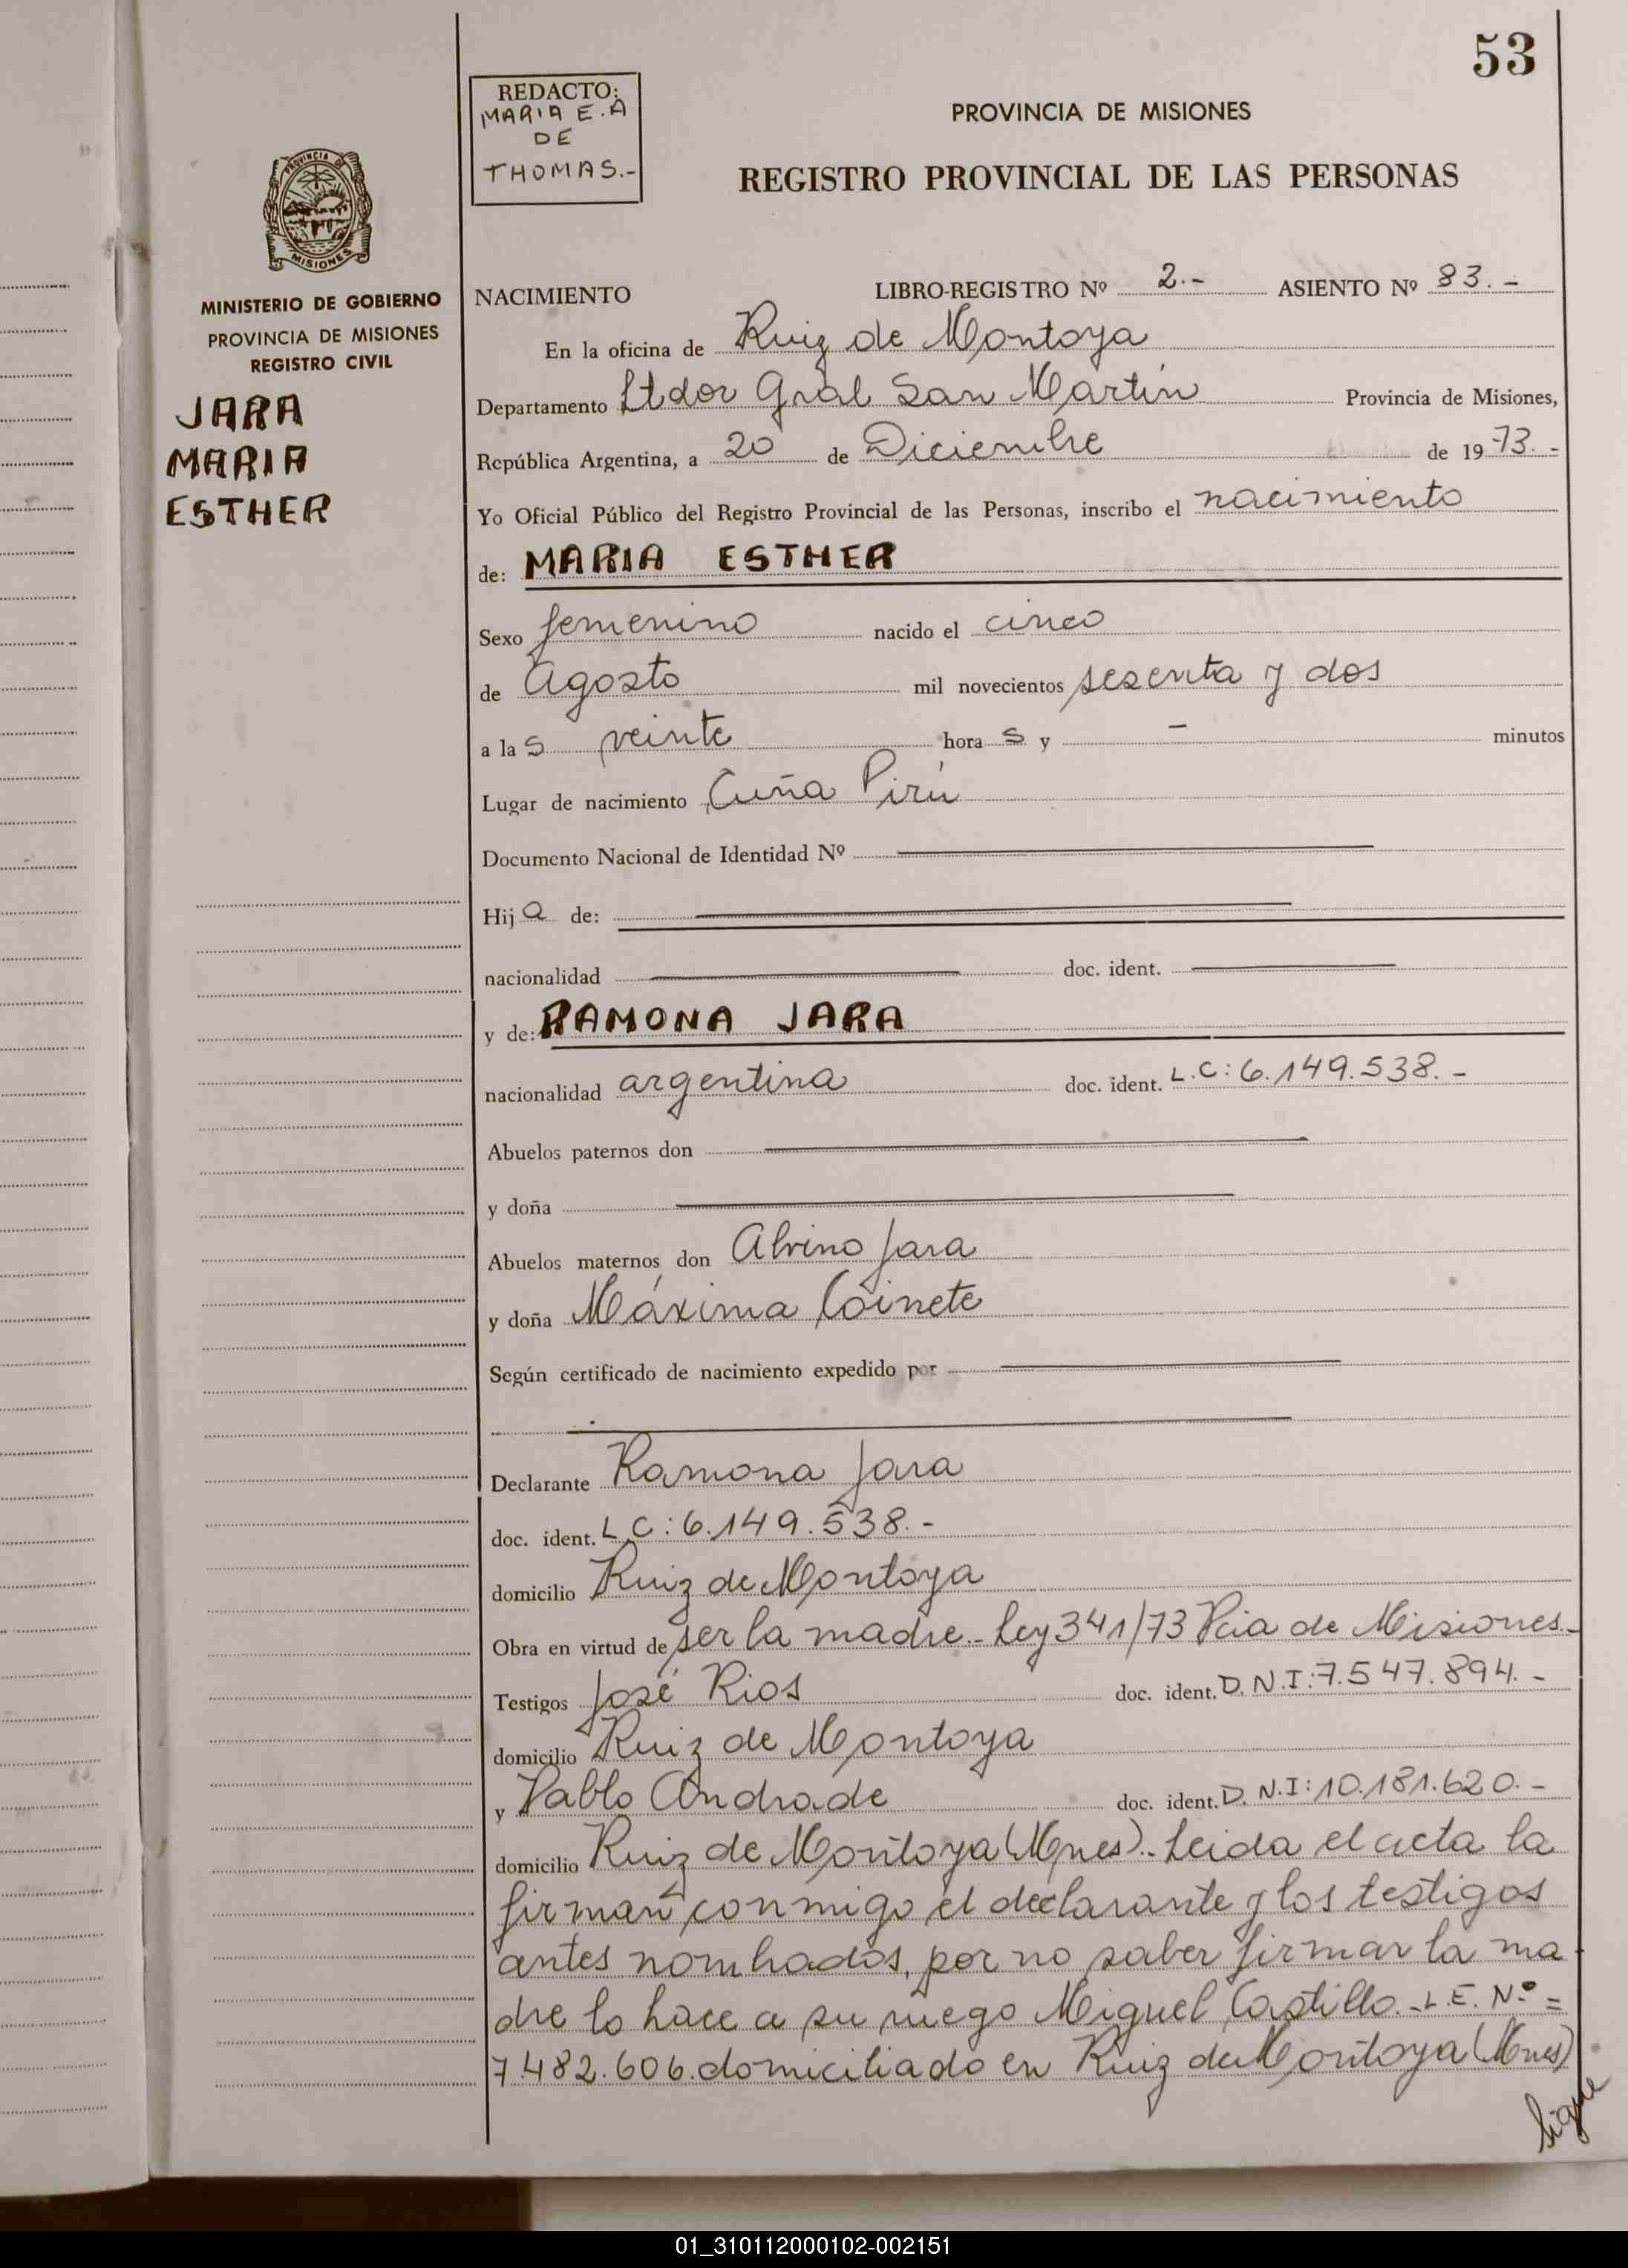 53
REDACTO:
MARIA E. A
DE
THOMAS.-
PROVINCIA DE MISIONES
REGISTRO PROVINCIAL DE LAS PERSONAS
PROVINCIA DE
MISIONES
MINISTERIO DE GOBIERNO
PROVINCIA DE MISIONES
REGISTRO CIVIL
JARA
MARIA
ESTHER
NACIMIENTO LIBRO-REGISTRO Nº 2.- ASIENTO Nº 83.-
En la oficina de Ruiz de Montoya
Departamento Ltdor Gral San Martín Provincia de Misiones,
República Argentina, a 20 de Diciembre de 1973.-
Yo Oficial Público del Registro Provincial de las Personas, inscribo el nacimiento
de: MARIA ESTHER
Sexo femenino nacido el cinco
de Agosto mil novecientos sesenta y dos
a las veinte horas y - minutos
Lugar de nacimiento Cuña Pirú
Documento Nacional de Identidad Nº
Hija de:
nacionalidad doc. ident.
y de: RAMONA JARA
nacionalidad argentina doc. ident. L.C: 6.149.538.-
Abuelos paternos don
y doña
Abuelos maternos don Alvino Jara
y doña Máxima Coinete
Según certificado de nacimiento expedido por
Declarante Ramona Jara
doc. ident. L.C: 6.149.538.-
domicilio Ruiz de Montoya
Obra en virtud de ser la madre.- Ley 341/73 Pcia de Misiones.-
Testigos José Rios doc. ident. D.N.I: 7.547.894.-
domicilio Ruiz de Montoya
y Pablo Andrade doc. ident. D.N.I: 10.181.620.-
domicilio Ruiz de Montoya (Mnes).- Leida el acta la
firman conmigo el declarante y los testigos
antes nombrados, por no saber firmar la ma
dre lo hace a su ruego Miguel Castillo.- L.E. Nº=
7.482.606. domiciliado en Ruiz de Montoya (Mnes)
Sigue
01_310112000102-002151